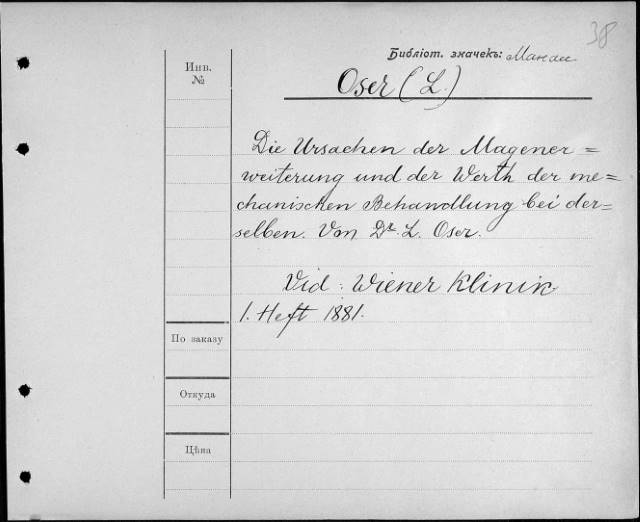 38
Библіот. значекъ:
Инв.
№
Oser (L.)
Die Ursachen der Magener=
weiterung und der Werth der me=
chanischen Behandlung bei der=
selben. Von Dr. L. Oser.
Vid: Wiener Klinik
1. Heft 1881.
По заказу
Откуда
Цѣна